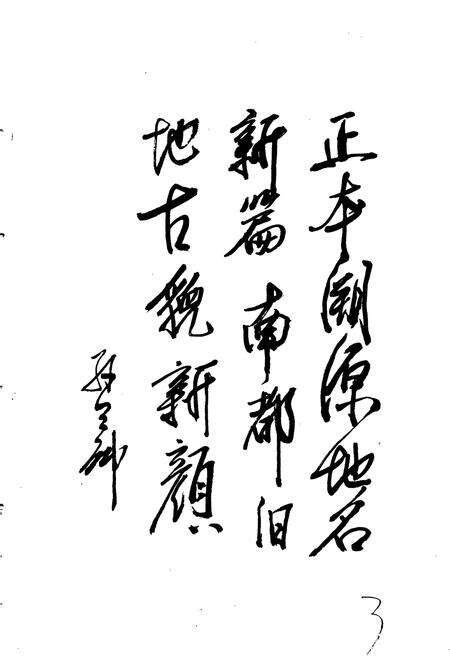 正本溯源地名
新篇南都旧
地古貌新颜
3